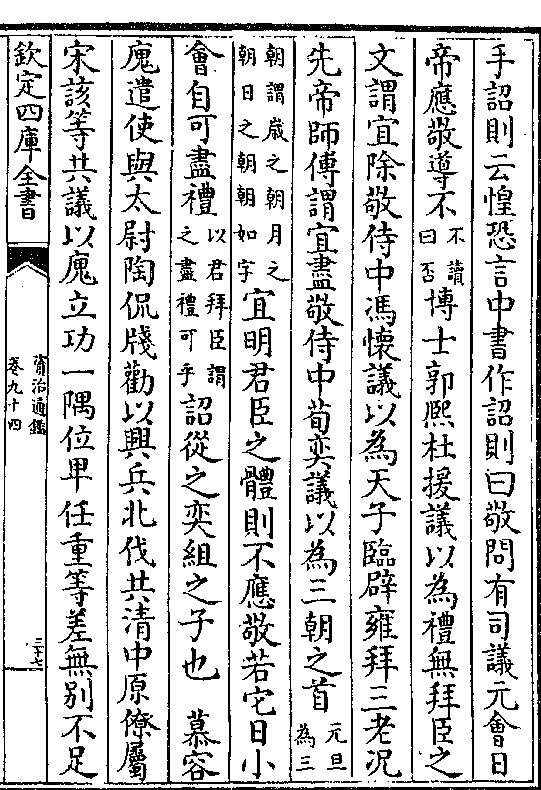 手詔則云惶恐言中書作詔則曰敬問有司議元會日
帝應敬導不不讀曰否博士郭熙杜援議以為禮無拜臣之
文謂宜除敬侍中馮懷議以為天子臨辟雍拜三老況
先帝師傅謂宜盡敬侍中荀奕議以為三朝之首元旦為三
朝謂歲之朝月之朝日之朝朝如字宜明君臣之體則不應敬若它日小
會自可盡禮以君拜臣謂之盡禮可乎詔從之奕組之子也　慕容
廆遣使與太尉陶侃牋勸以興兵北伐共清中原僚屬
宋該等共議以廆立功一隅位卑任重等差無別不足
欽定四庫全書
資治通鑑
卷九十四
三十七